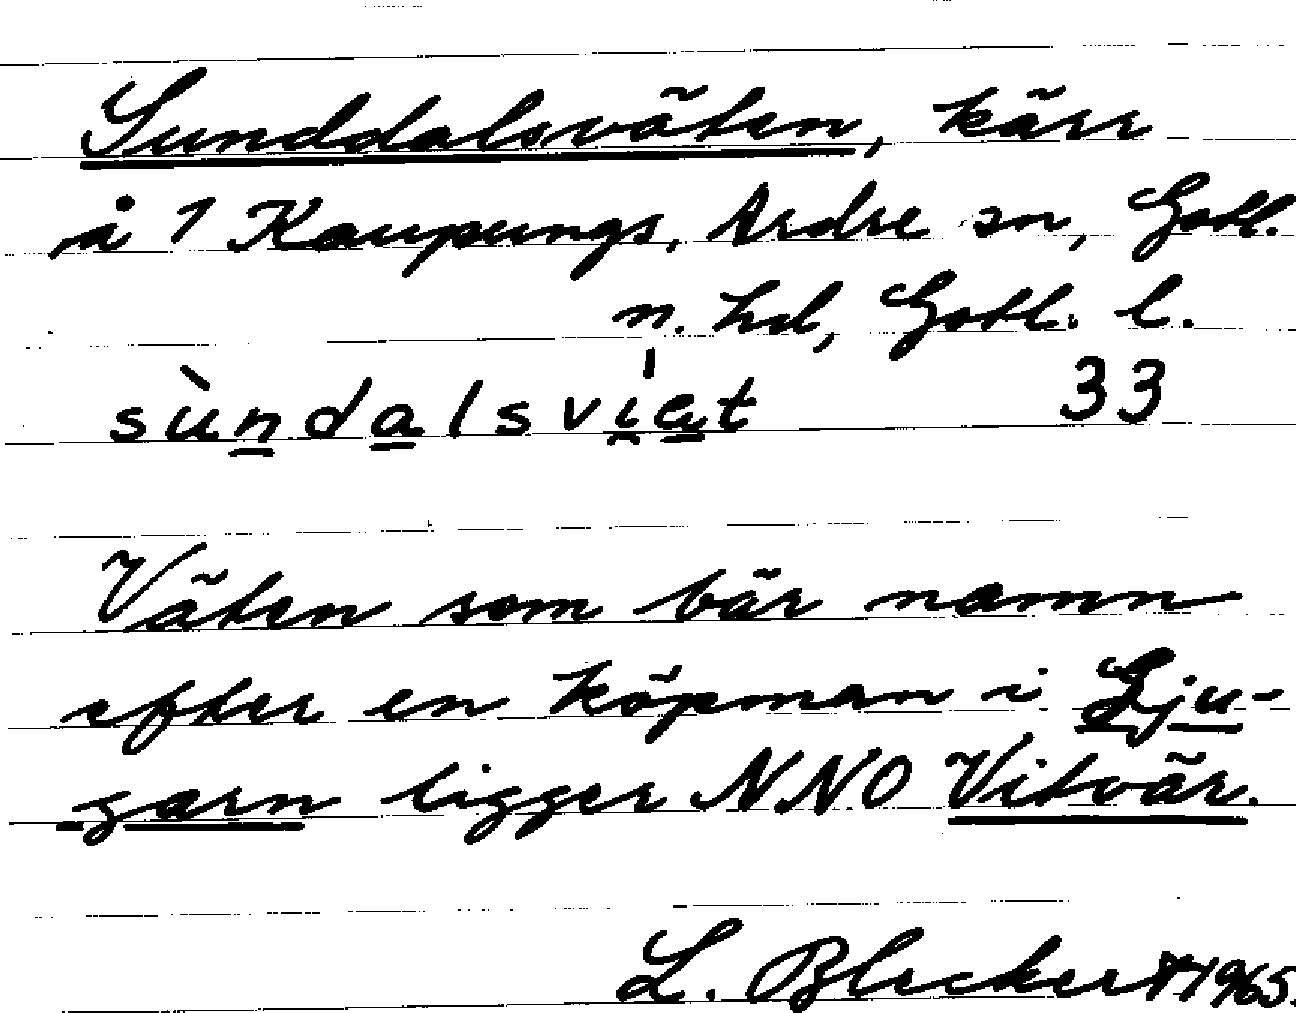 Sunddalsväten, kärr
på 1 Kaupungs, Ardre sn, Gotl.
n. hd, Gotl. l.
sùndalsvi̍et 33
Väten som bär namn
efter en köpman i Lju-
garn ligger NNO Vitvär.
L. Bleckert 1965.